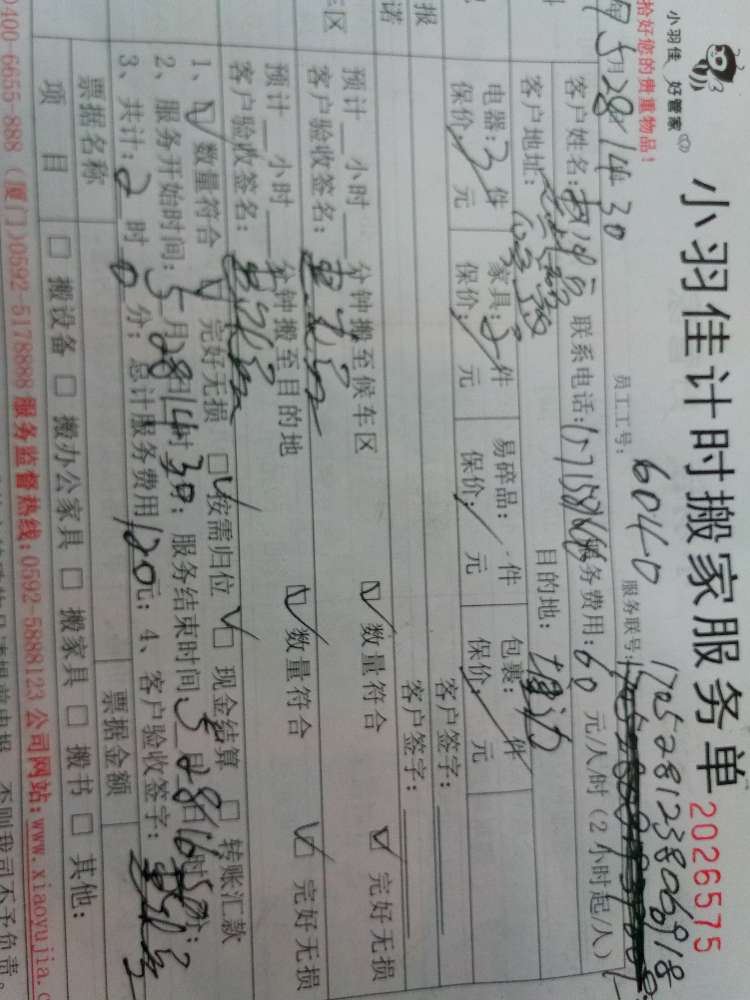 小羽佳 好管家
小羽佳计时搬家服务单 2026575
拾好您的贵重物品!
员工工号: 6040 服务联号: 170528123806918
5月28 14 30
客户姓名: 联系电话: 服务费用: 60 元/人/时 (2小时起/人)
客户地址: 目的地:
电器: 3 件 家具: 件 易碎品: 件 包裹: 件
保价: / 元 保价: / 元 保价: / 元 保价: / 元
报 客户签字:
诺 客户签字:
车区
预计 小时 分钟搬至候车区 数量符合 完好无损
客户验收签名:
预计 小时 分钟搬至目的地 数量符合 完好无损
客户验收签名:
1、 数量符合 完好无损 按需归位 现金结算 转账汇款
2、服务开始时间: 5月28 14时30; 服务结束时间 5月28 16时
3、共计: 2时0分; 总计服务费用120元; 4、客户验收签字:
票据名称 票据金额
项 目 搬设备 搬办公家具 搬家具 搬书 其他:
0400-6655-888 (厦门)0592-5178888 服务监督热线:0592-5888123 公司网站:www.xiaoyujia.c
否则我司不予负责。